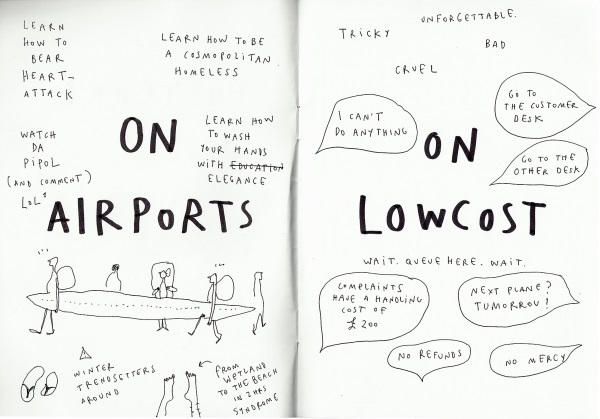 LEARN
HOW TO
BEAR
HEART-
ATTACK
LEARN HOW TO BE
A COSMOPOLITAN
HOMELESS
ON
WATCH
DA
PIPOL
(AND COMMENT)
LOL'
LEARN HOW
TO WASH
YOUR HANDS
WITH EDUCATION
ELEGANCE
AIRPORTS
WINTER
TRENDSETTERS
AROUND
FROM
WETLAND
TO THE BEACH
IN 2 HRS
SYNDROME
UNFORGETTABLE.
TRICKY
BAD
CRUEL
GO TO
THE CUSTOMER
DESK
I CAN'T
DO ANYTHING
ON
GO TO THE
OTHER DESK
LOWCOST
WAIT. QUEUE HERE. WAIT.
COMPLAINTS
HAVE A HANDLING
COST OF
£200
NEXT PLANE?
TUMORROU!
NO REFUNDS
NO MERCY